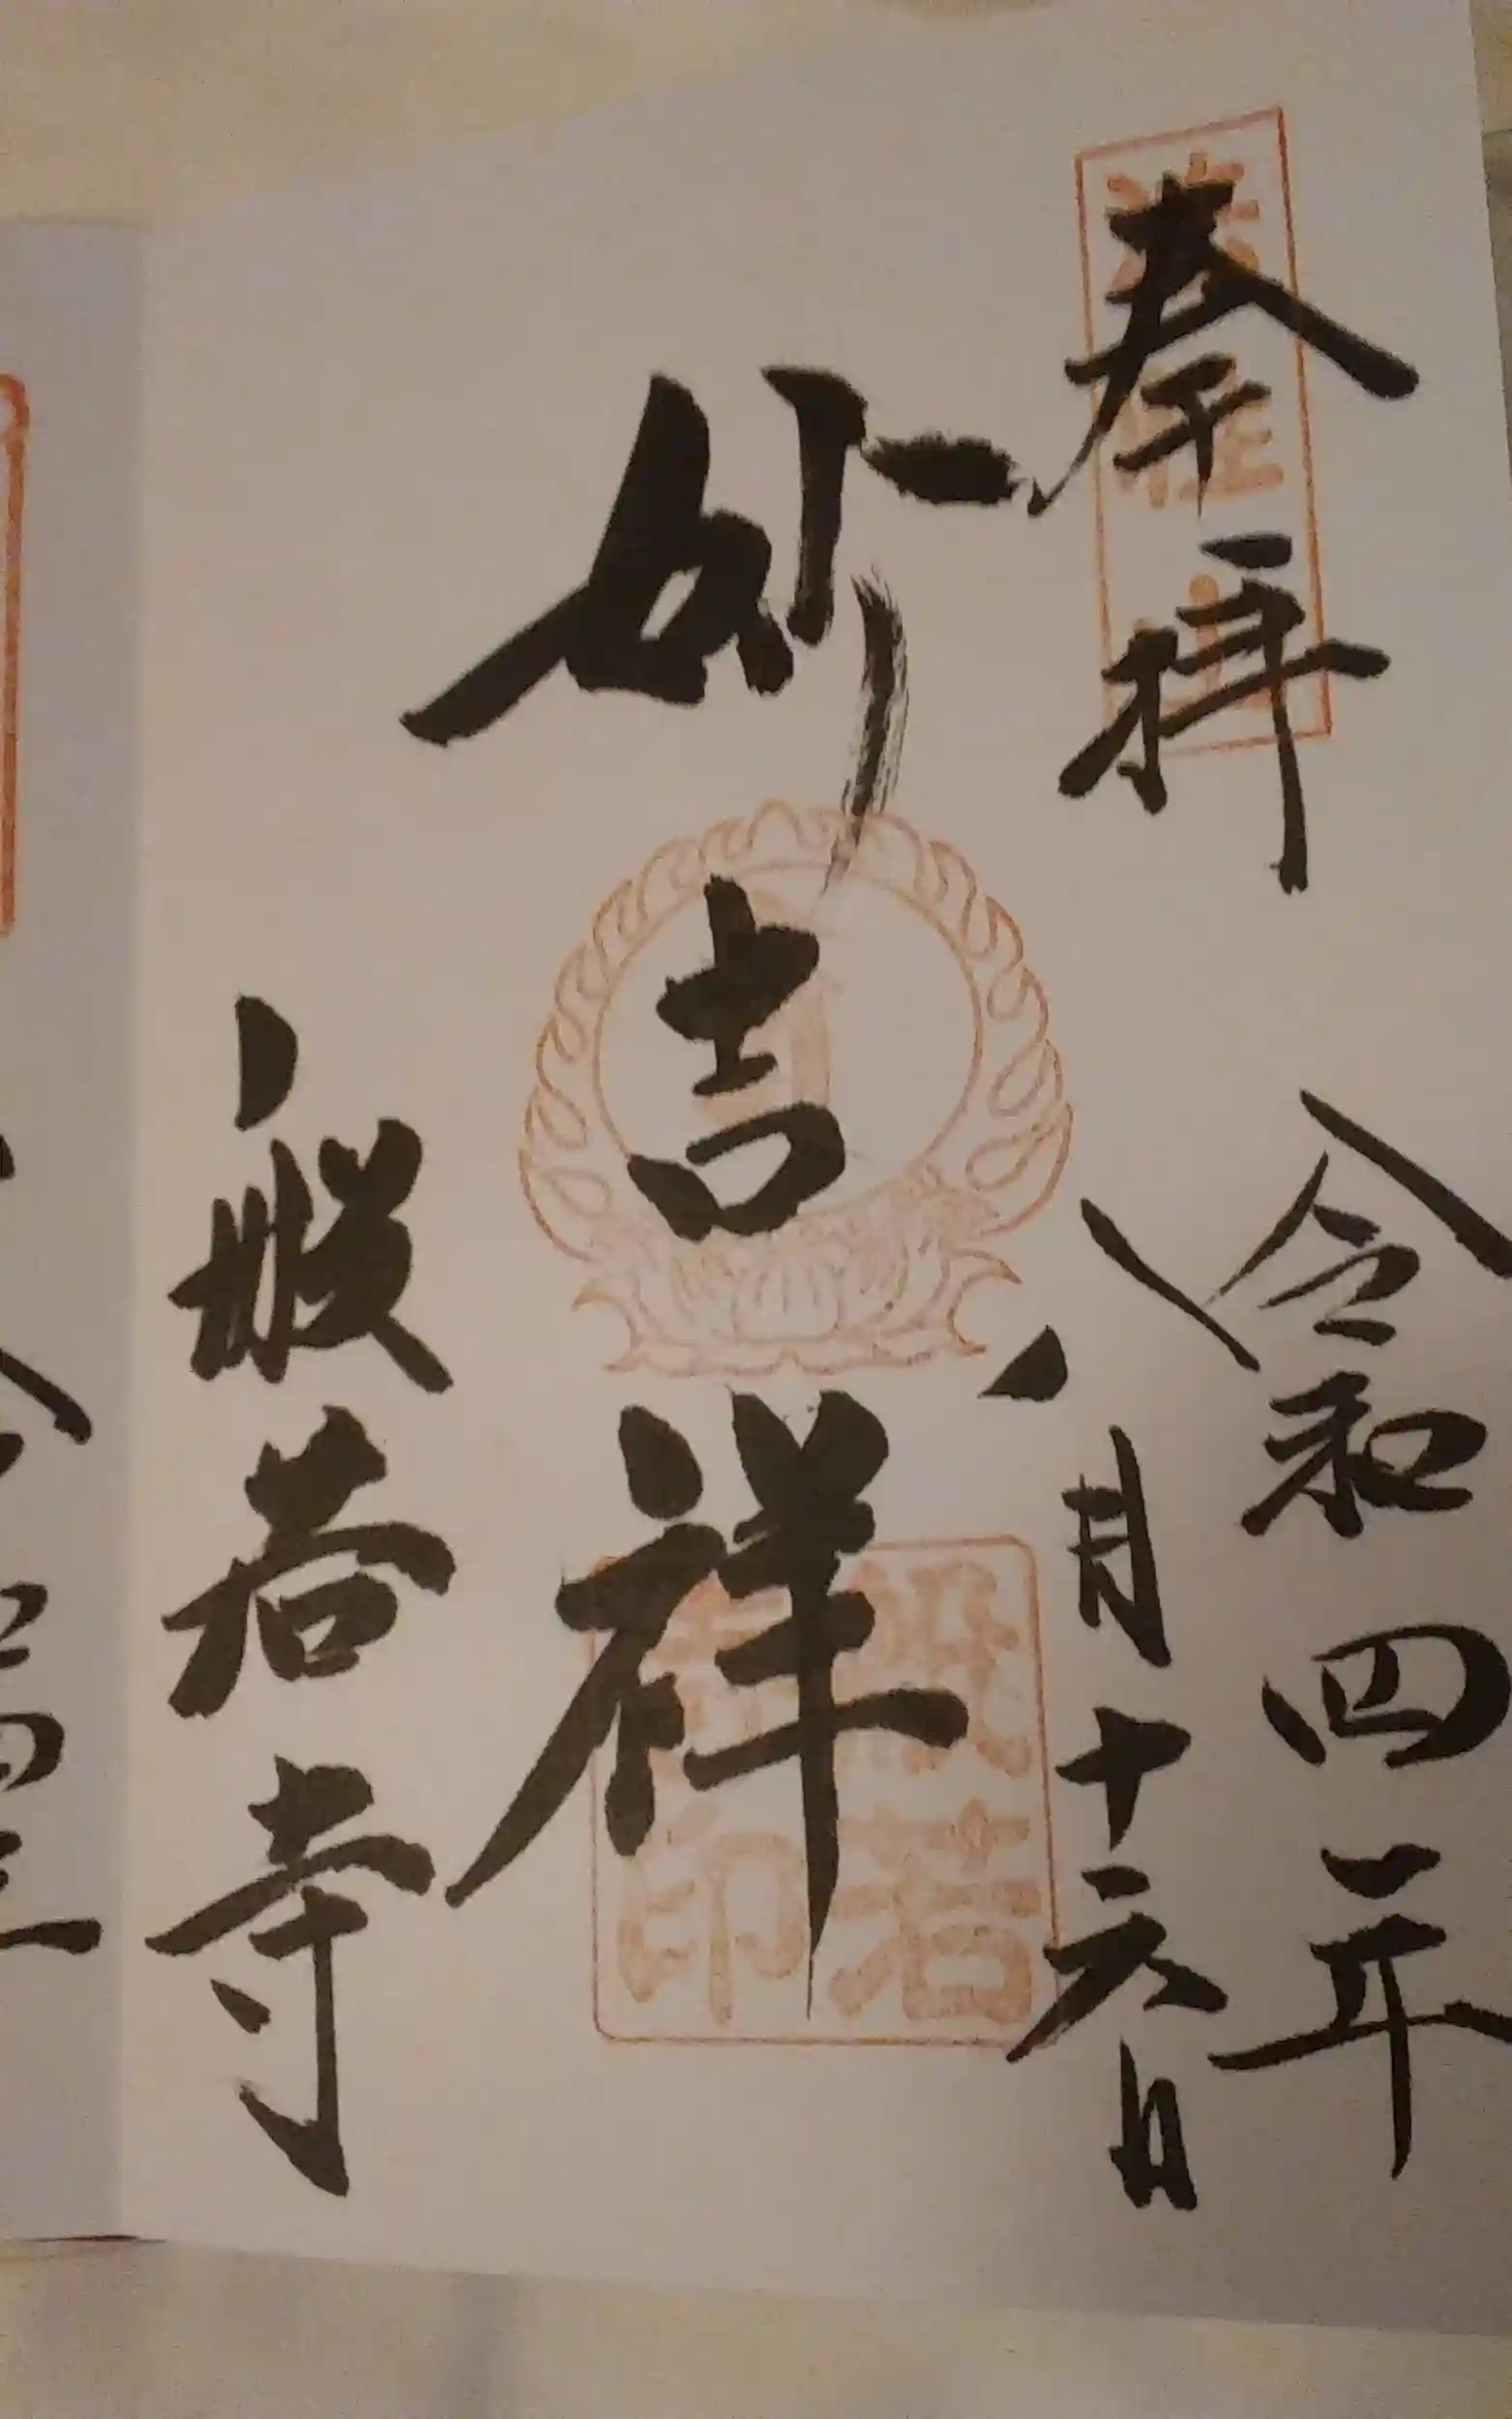 奉拝
令和四年
八月十六日
妙吉祥
般若寺
般若
印